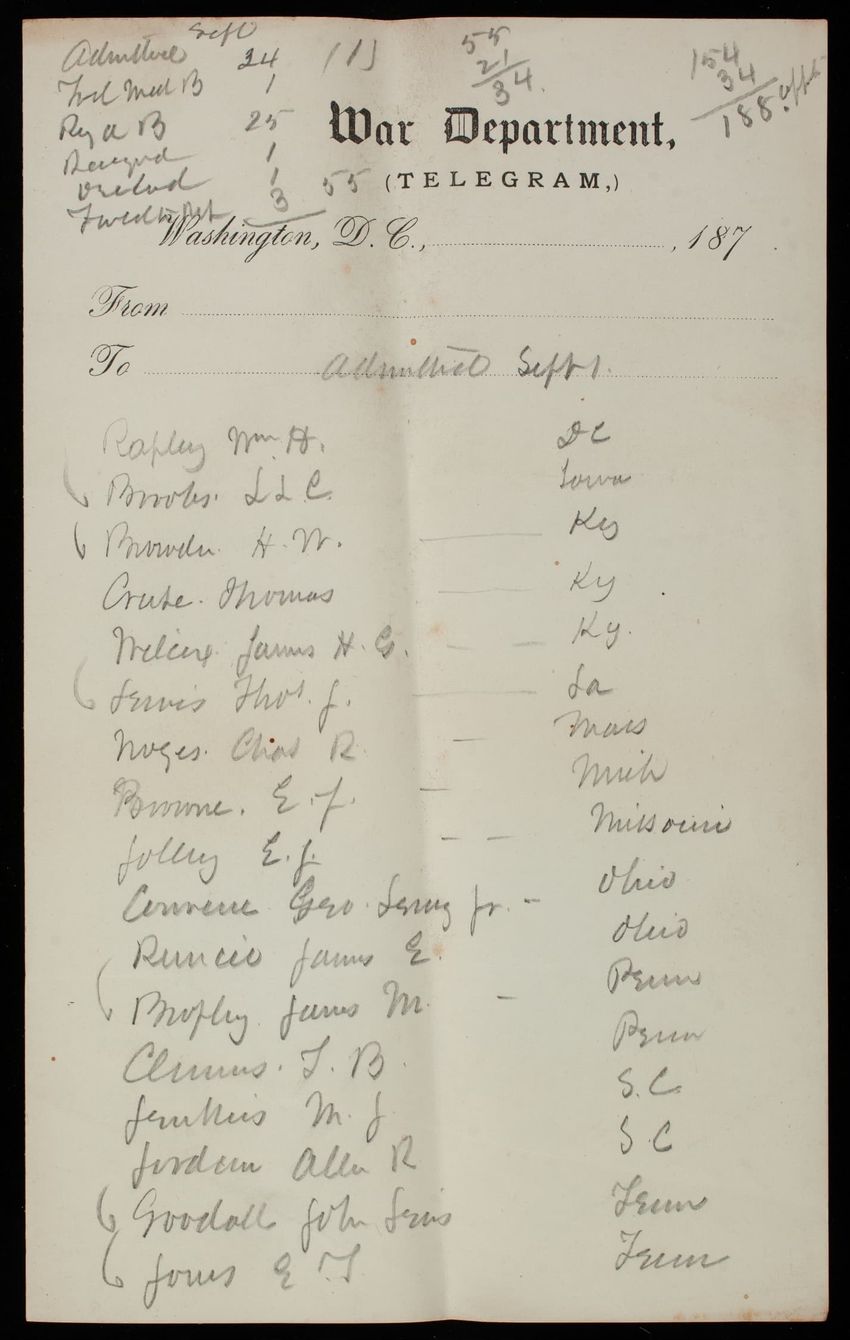 Sept
Admitted 24 (1)
Fr'd Med B 1
Reg a B 25
Resigned 1
1
3 55
55
21
34
154
34
188
War Department,
(TELEGRAM,)
Washington, D. C., , 187 .
From
To Admitted Sept 1.
Rapley Wm. H. DC
Brooks. L L C. Iowa
Browder H. W. Ky
Thomas Ky
James H. G. Ky.
Lewis Thos. J. La
Noyes. Chas R. Mass
Browne. E. J. Mich
Jolley E. J. Missouri
Converse Geo. Leroy Jr. Ohio
Runcie James E. Ohio
Brophy James M. Penn
Clemens. T. B. Penn
Jenkins M. J. S. C
Jordan Allen R S. C
Goodall John Lewis Tenn
Jones E T Tenn